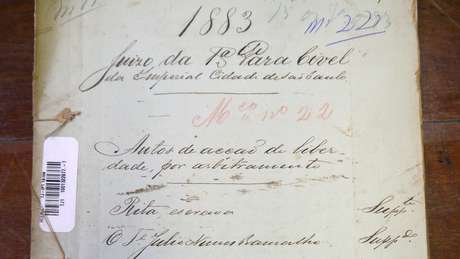 1883
Nº 222
Juizo da 1ª Vara Civel
da Imperial Cidade de São Paulo
Mço nº 22
Autos de acção de liber-
dade, por arbitramento
Rita, escrava Suppte
O Dr Julio Nunes Ramalho. Suppdo